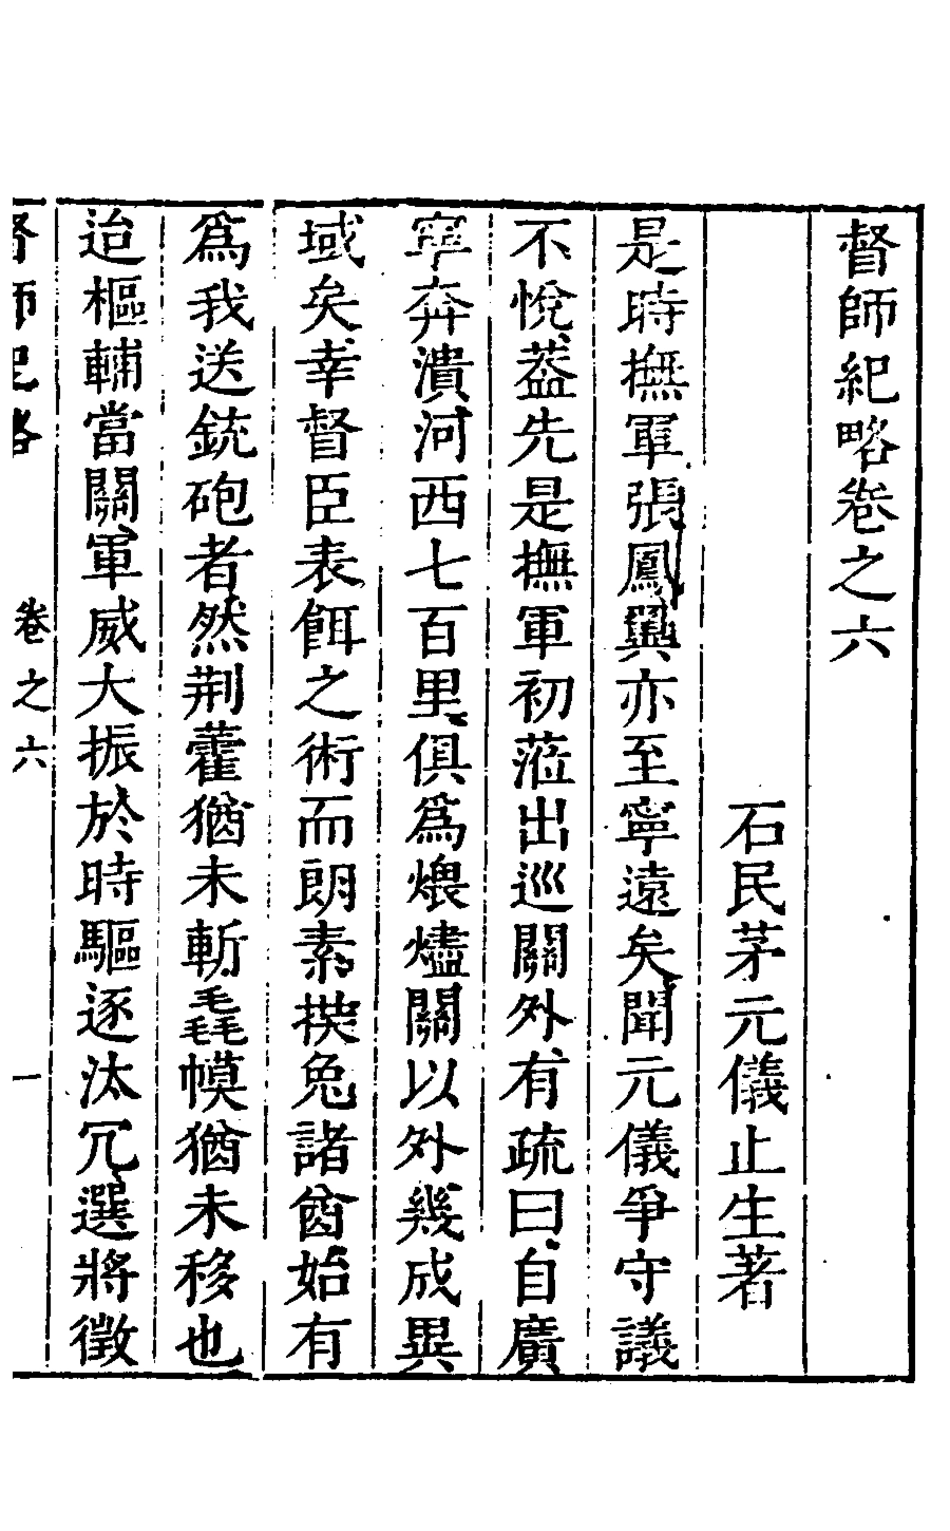 督師紀略卷之六
石民茅元儀止生著
是時撫軍張鳳翼亦至寧遠矣聞元儀爭守議
不悅葢先是撫軍初蒞出巡關外有疏曰自廣
寧奔潰河西七百里俱為煨燼關以外幾成異
域矣幸督臣表餌之術而朗素揬兔諸酋始有
為我送銃砲者然荆藿猶未斬毳幙猶未移也
迨樞輔當關軍威大振於時驅逐汰冗選將徵
督師紀略 卷之六 一